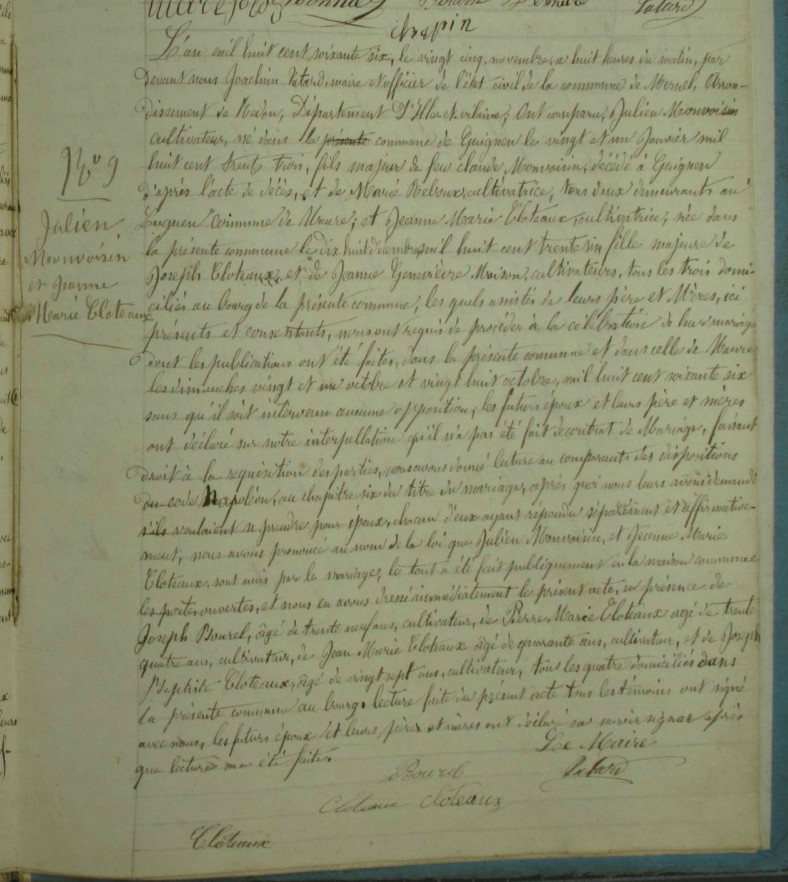 chapin
L'an mil huit cent soixante six, le vingt cinq novembre, a huit heures du matin, par
devant nous Joachim Patard, maire et officier de l'état civil de la commune de Mernel, Arron-
dissement de Redon, Département D'Ille et vilaine, Ont comparu, Julien Monvoisin
cultivateur, né dans la présente commune de Guignen le vingt et un Janvier mil
huit cent trente trois, fils majeur de feu claude Monvoisin, décédé à Guignen
d'après l'acte de décès, et de Marie cultivatrice, tous deux demeurants au
commune de Maure; et Jeanne Marie Cloteaux, cultivatrice, née dans
la présente commune le dix huit mil huit cent trente six fille majeure de
Joseph Cloteaux, et de Jeanne Geneviève Maison, cultivateurs, tous les trois domi-
N° 9
Julien
Monvoisin
et Jeanne
Marie Cloteaux
ciliés au bourg de la présente commune, les quels assistés de leurs père et Mères, ici
présents et consentants, nous ont requis de procéder à la célébration de leur mariage
dont les publications ont été faites, dans la présente commune et dans celle de Maure
les dimanches vingt et un octobre et vingt huit octobre, mil huit cent soixante six
sans qu'il soit intervenu aucune opposition, les futurs époux et leurs père et mères
ont déclaré sur notre interpellation qu'il n'a pas été fait de contrat de Mariage, faisant
droit à la requisition des parties, nous avons donné lecture au comparants des dispositions
du code Napoléon, au chapitre six du titre du mariage, après quoi nous leurs avons demandé
s'ils voulaient se prendre pour époux, chacun d'eux ayant répondu séparément et affirmative-
ment, nous avons prononcé au nom de la loi que Julien Monvoisin, et Jeanne Marie
Cloteaux, sont unis par le mariage, le tout a été fait publiquement en la maison commune
les portes ouvertes, et nous en avons dressé immédiatement le présent acte, en présence de
Joseph Bourel, âgé de trente neuf ans, cultivateur, de Pierre Marie Cloteaux agé de trente
quatre ans, cultivateur, de Jean Marie Cloteaux âgé de quarante ans, cultivateur, et de Joseph
Baptiste Cloteaux, âgé de vingt sept ans, cultivateur, tous les quatre domiciliés dans
la présente commune au bourg. lecture faite du présent acte tous les témoins ont signé
avec nous, les futurs époux et leurs père et mères ont déclaré ne savoir signer après
que lecture en a été faite.
Le Maire
Bourel
Patard
Cloteaux Cloteaux
Cloteaux